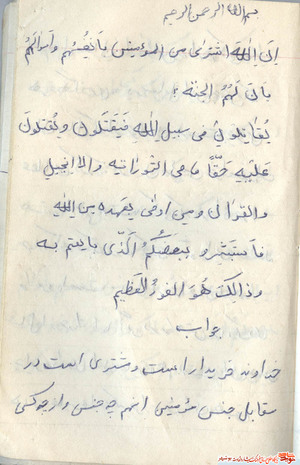 بسم الله الرحمن الرحیم
اِنَ اللهِ اشتریٰ من المؤمنین بِاَنفُسَهُم وَاَموالَهُم
بِاَنَ لَهُمُ الجَنَة :
یُقٰایِلُونَ فی سبیل اللهِ فَیَقتُلُونَ وَ یُقتَلُونَ
عَلَیهِ حَقّاً ما فی التوراتیه والاانجیلِ
والقرآنِ و من اوفی بعهده من اللهِ
فَاستَبشِرو ببعضُکُمُ اَلَّذی بایعتم به
وَ ذالِکَ هُوَ الفوزُ العَظیم
جواب
خداوند خریدار است و مشتری است در
مقابل جنس مؤمنین آنهم چه جنس و از چه کسی